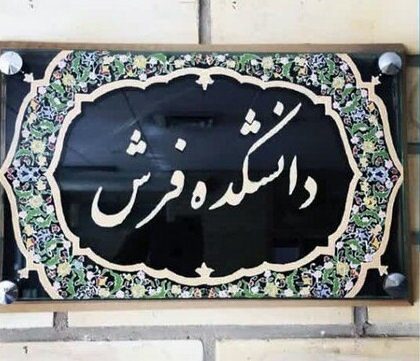 دانشکده فرش